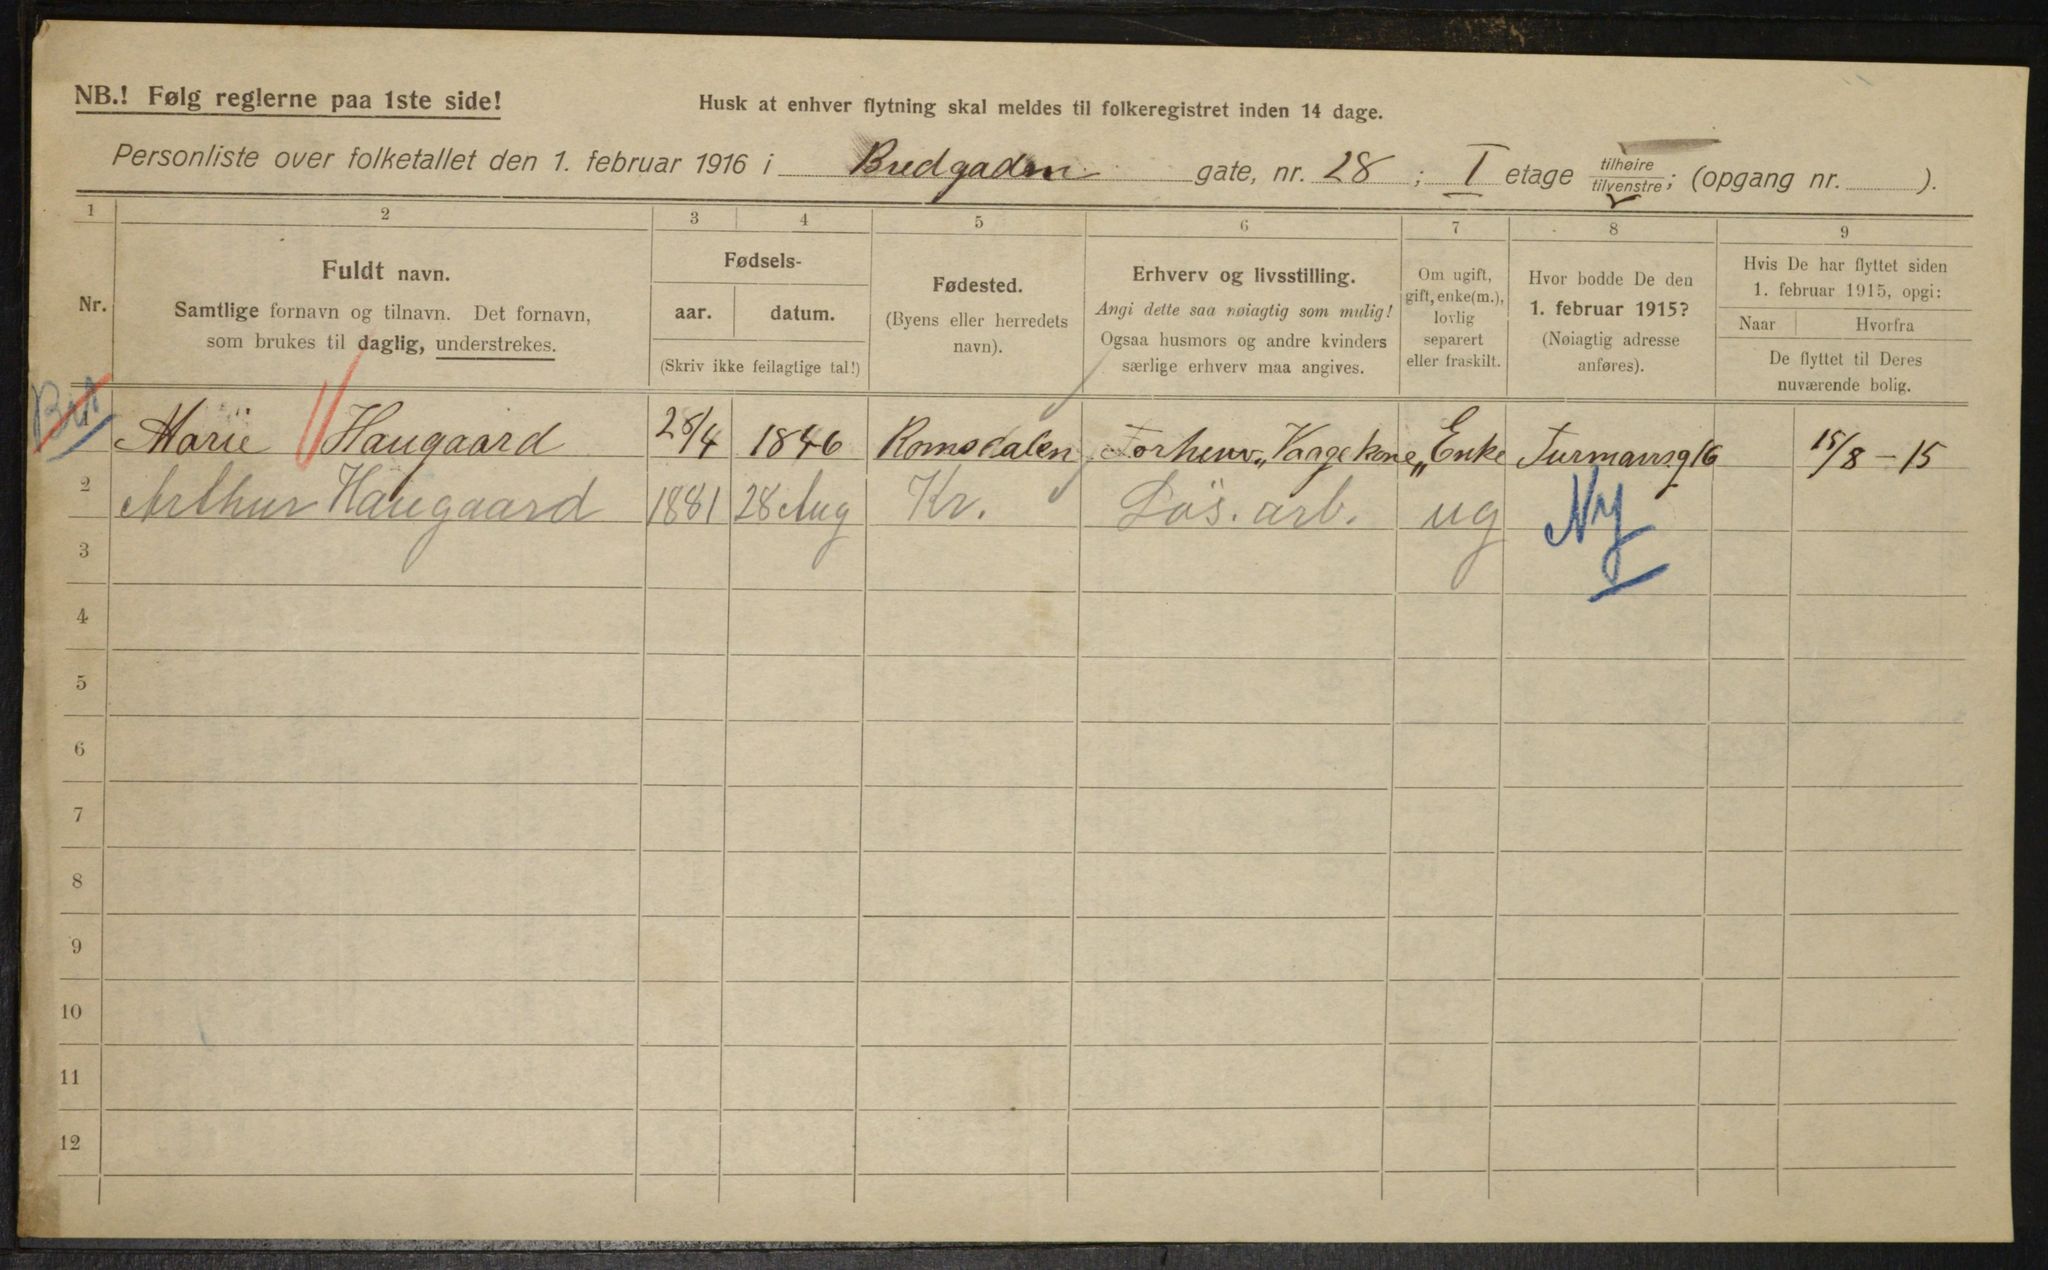 NB.! Følg reglerne paa 1ste side!
Husk at enhver flytning skal meldes til folkeregistret inden 14 dage.
Personliste over folketallet den 1. februar 1916 i Bredgaden gate, nr. 28 ; I etage tilhøire tilvenstre; (opgang nr. ).
1 2 3 4 5 6 7 8 9
Nr.
Fuldt navn.
Samtlige fornavn og tilnavn. Det fornavn,
som brukes til daglig, understrekes.
Fødsels-
aar. datum.
(Skriv ikke feilagtige tal!)
Fødested.
(Byens eller herredets
navn).
Erhverv og livsstilling.
Angi dette saa nøiagtig som mulig!
Ogsaa husmors og andre kvinders
særlige erhverv maa angives.
Om ugift,
gift, enke(m.),
lovlig
separert
eller fraskilt.
Hvor bodde De den
1. februar 1915?
(Nøiagtig adresse
anføres).
Hvis De har flyttet siden
1. februar 1915, opgi:
Naar Hvorfra
De flyttet til Deres
nuværende bolig.
Marie Haugaard 28/4 1846 Romsdalen Forhenv. Vaagekone Enke 16 15/8 - 15
2 Arthur Haugaard 1881 28 Aug Kr. Løs. arb. ug Ny
3
4
5
6
7
8
9
10
11
12